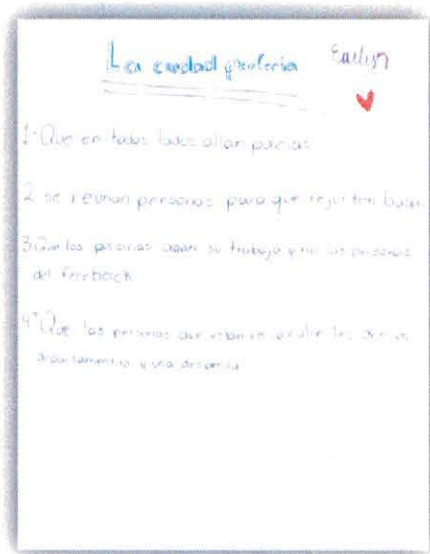 La ciudad
1- Que en todos lados allan policias
2 se reunan personas para que rejunten basura
3 Que los policias agan su trabajo y no las personas
del feceback
4- Que las personas que estan en la calle les den un
departamento y una despensa